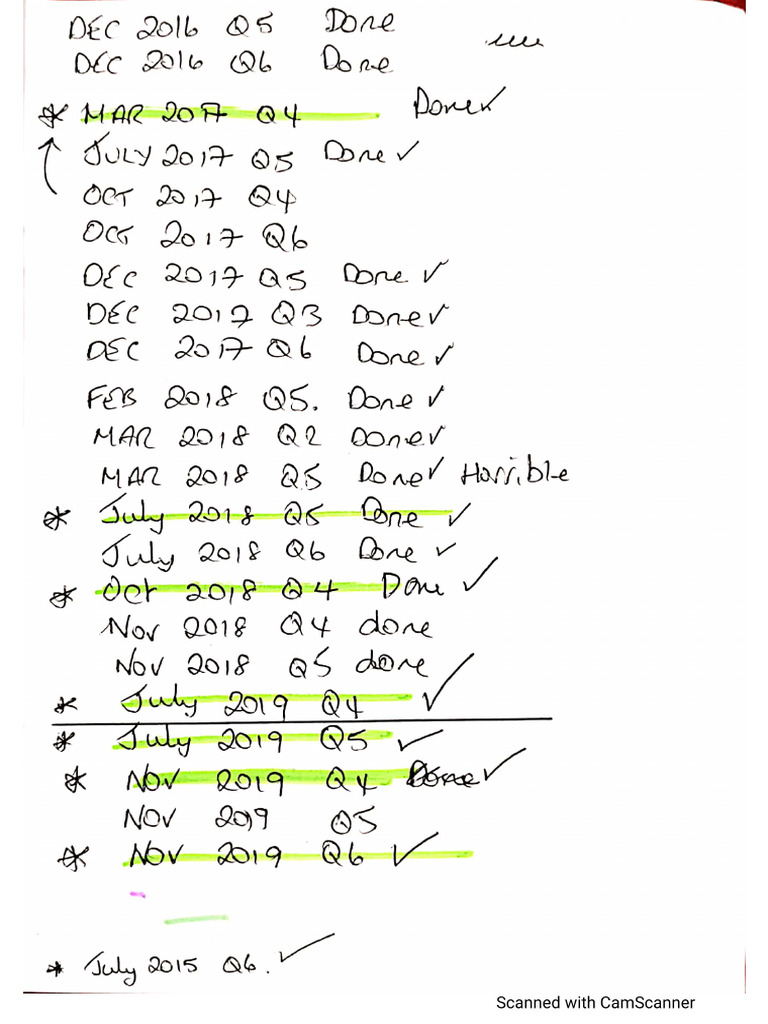 DEC 2016 Q5 Done
DEC 2016 Q6 Done
* MAR 2017 Q4 Done ✓
JULY 2017 Q5 Done ✓
OCT 2017 Q4
OCT 2017 Q6
DEC 2017 Q5 Done ✓
DEC 2017 Q3 Done ✓
DEC 2017 Q6 Done ✓
FEB 2018 Q5. Done ✓
MAR 2018 Q2 Done ✓
MAR 2018 Q5 Done ✓ Horrible
* July 2018 Q5 Done ✓
July 2018 Q6 Done ✓
* Oct 2018 Q4 Done ✓
Nov 2018 Q4 done
Nov 2018 Q5 done
* July 2019 Q4 ✓
* July 2019 Q5 ✓
* Nov 2019 Q4 Done ✓
NOV 2019 Q5
* Nov 2019 Q6 ✓
* July 2015 Q6. ✓
Scanned with CamScanner